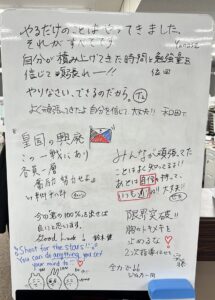 やるだけのことはやってきました。
それがすべてです
自分が積み上げてきた時間と勉強量を
信じて頑張れー!!
やりなさい、できるのだから。
よく頑張ってきたよ 自分を信じて 大丈夫!!
皇国の興廃
この一戦にあり
各員一層
奮励努力せよ
みんなが頑張ってた
ことはよく知ってるよ!
あとは自信持って、
いつも通り!! 大丈夫!!
今の君の100%を出せば
良いとおもいます。
Good Luck
Shoot for the stars!!
You can do anything you set
your mind to
限界突破!!
胸のトキメキを
止めるな
全力で